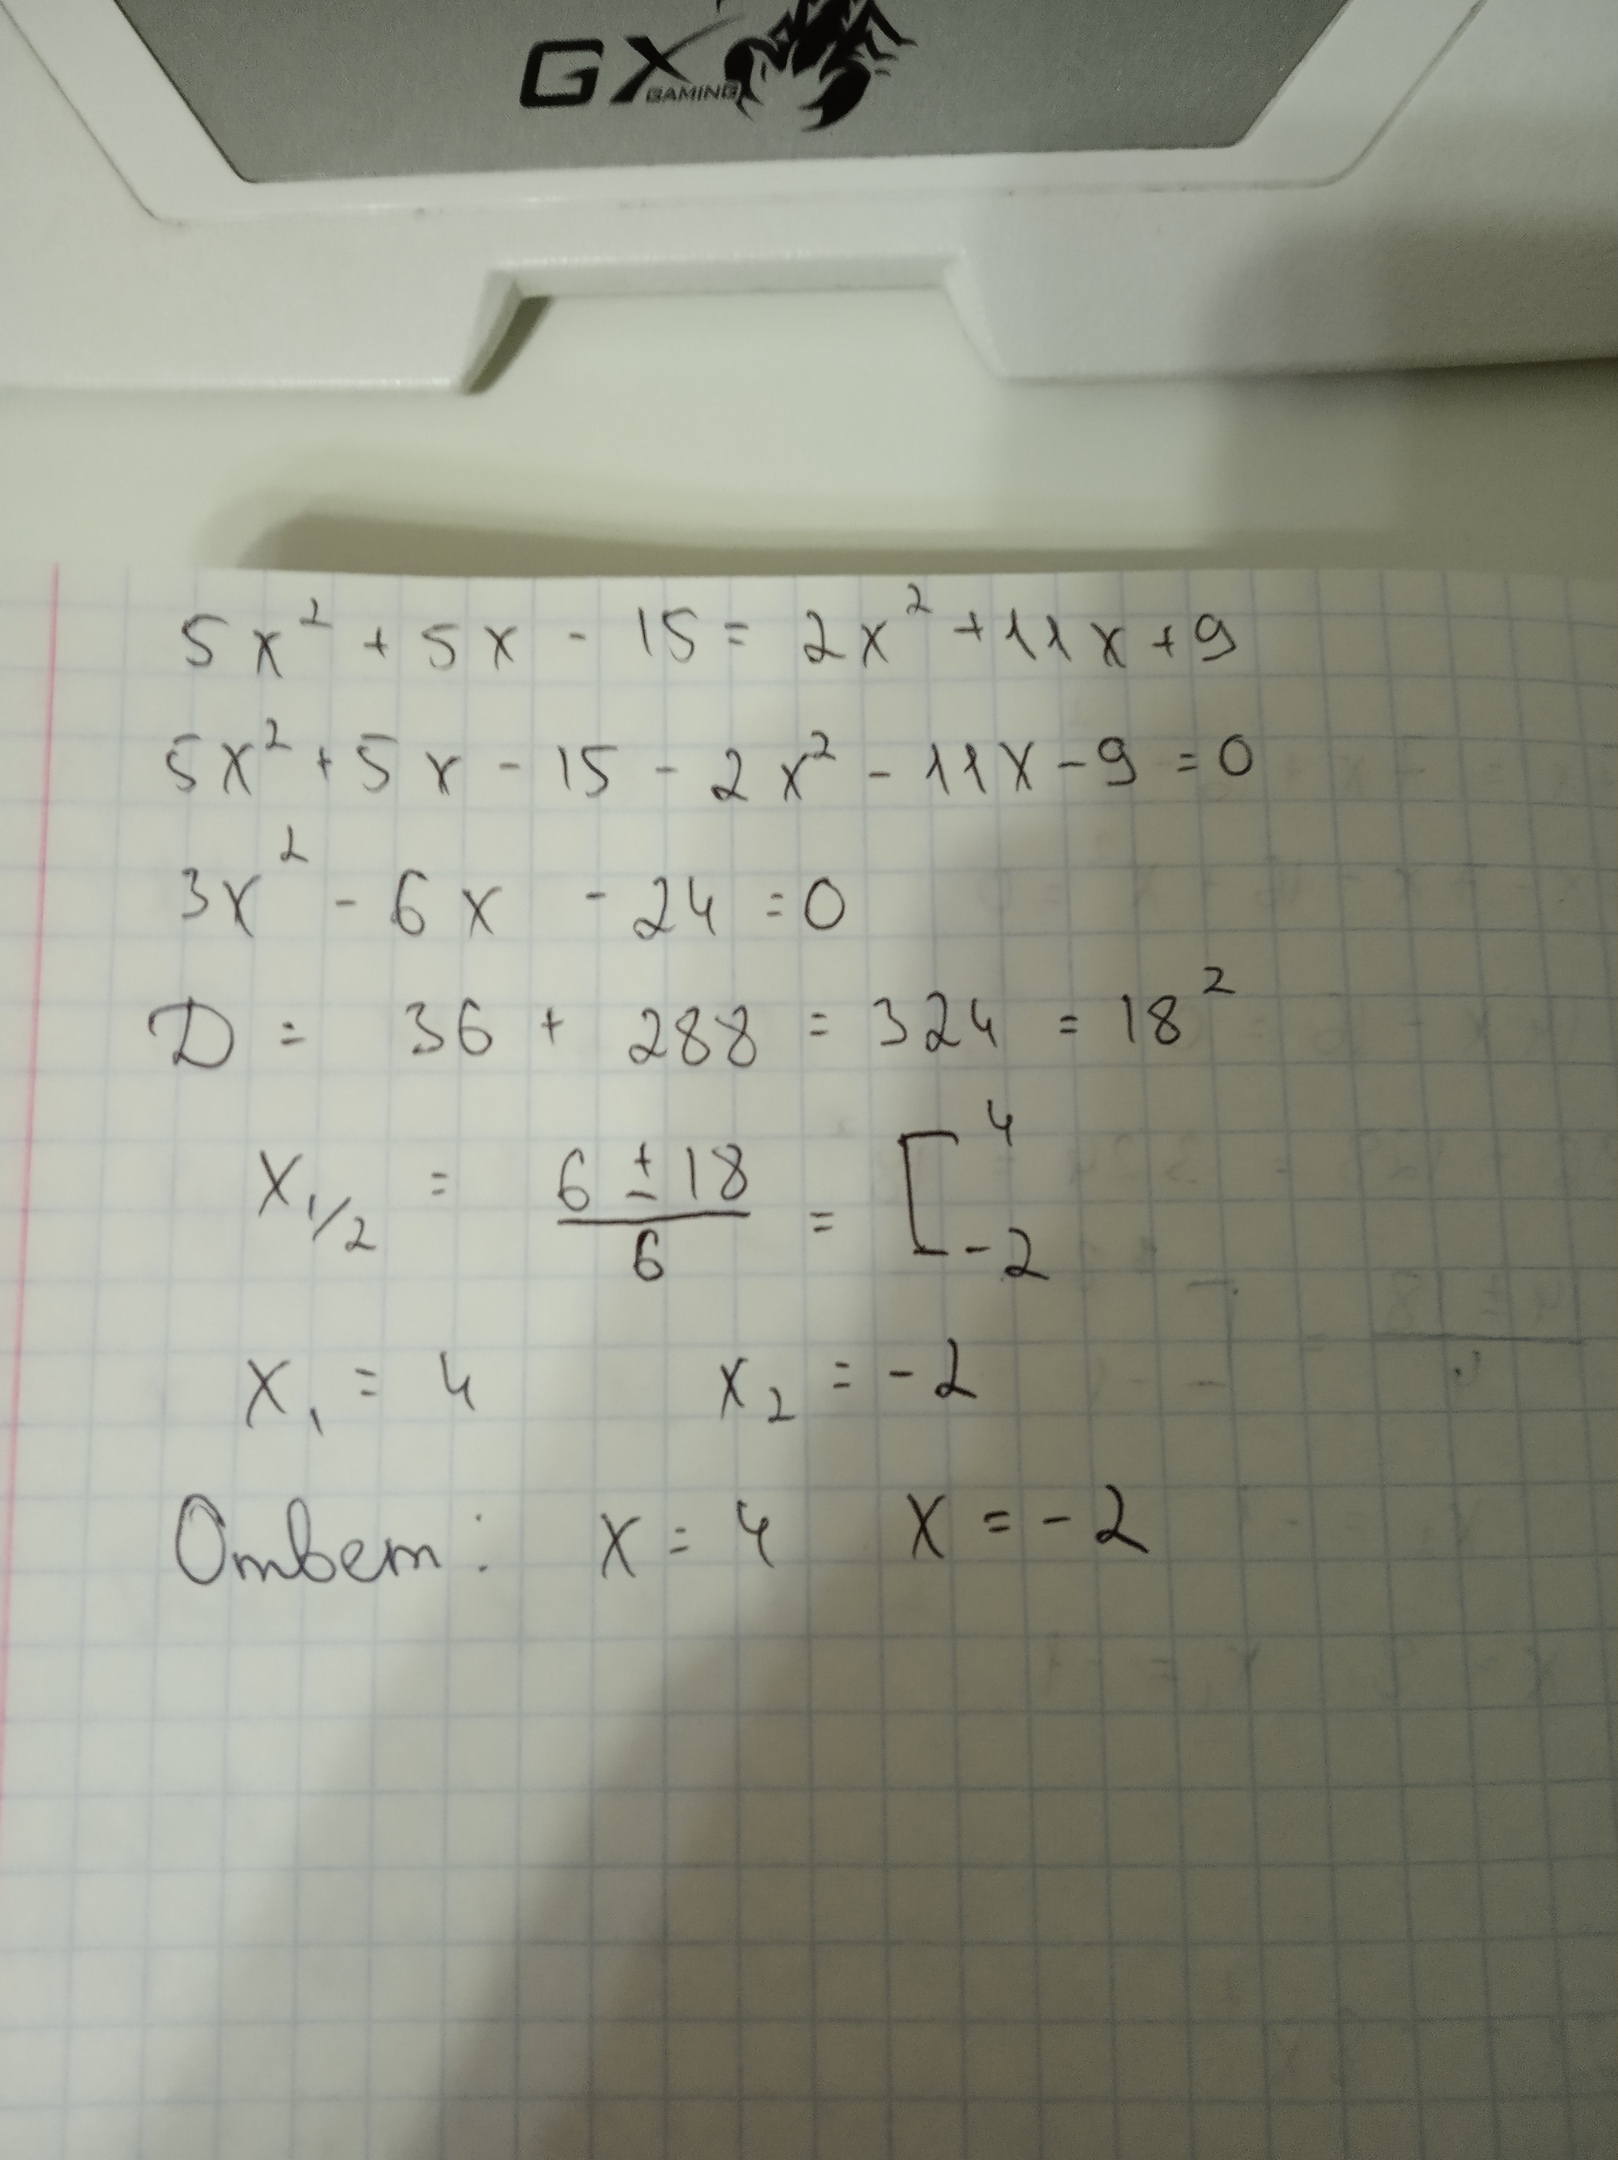 GX GAMING
5x² + 5x - 15 = 2x² + 11x + 9
5x² + 5x - 15 - 2x² - 11x - 9 = 0
3x² - 6x - 24 = 0
D = 36 + 288 = 324 = 18²
x₁/₂ = (6 ± 18)/6 = [4 -2
x₁ = 4 x₂ = -2
Ответ: x = 4 x = -2